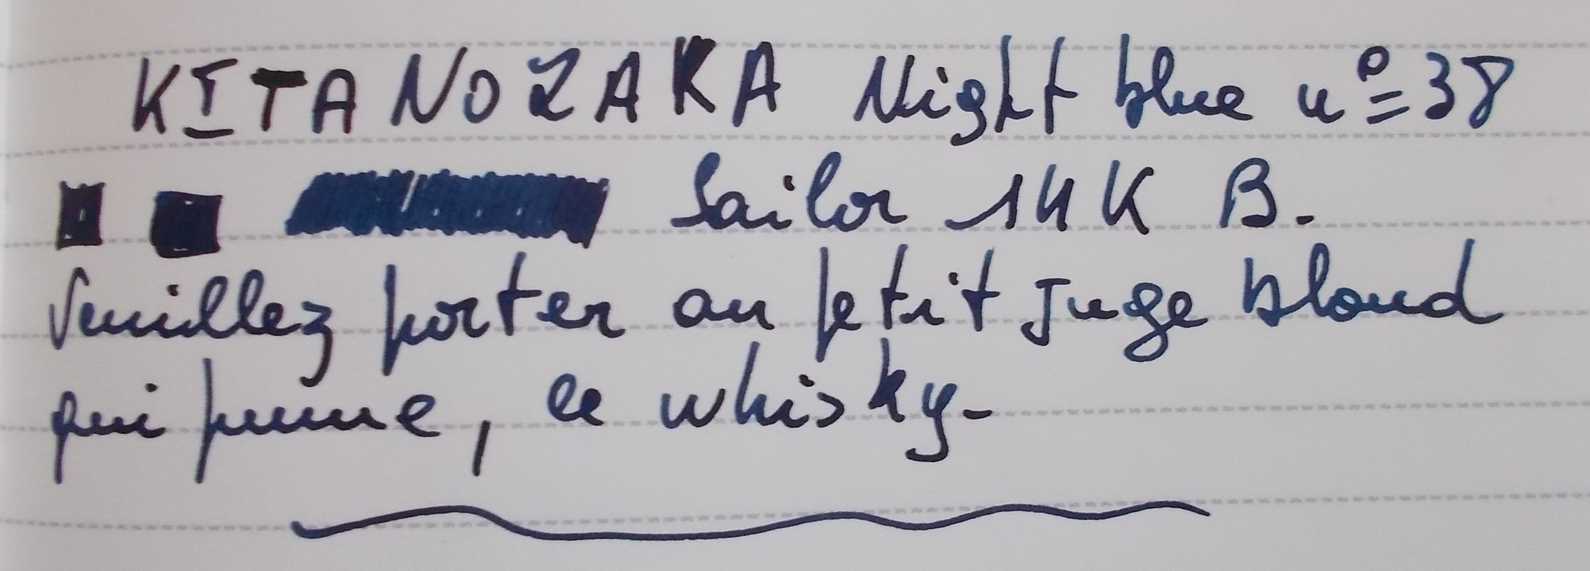 KITANOZAKA Night blue nº=38
Sailor 14K B.
Veuillez porter au petit juge blond
qui fume, ce whisky-